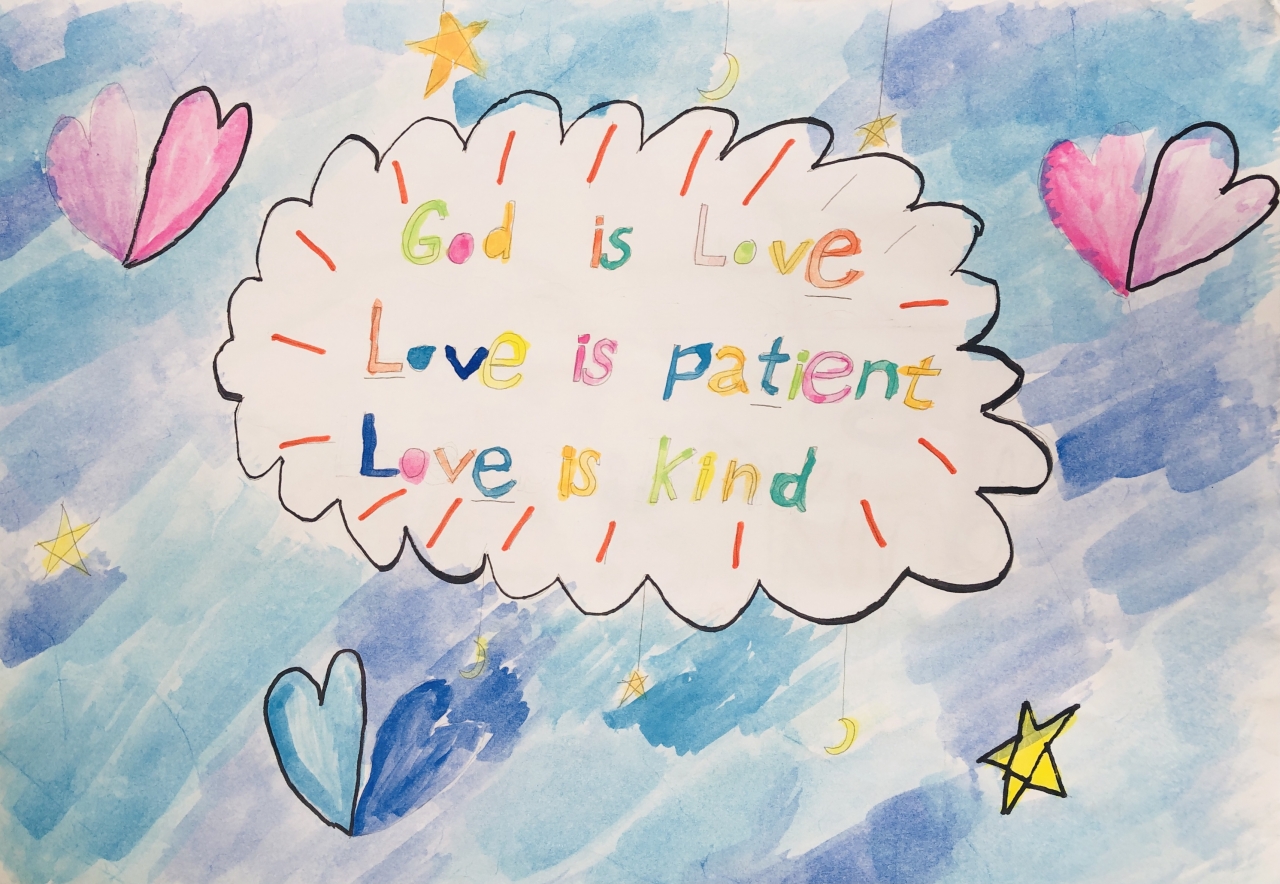 God is Love
Love is patient
Love is kind